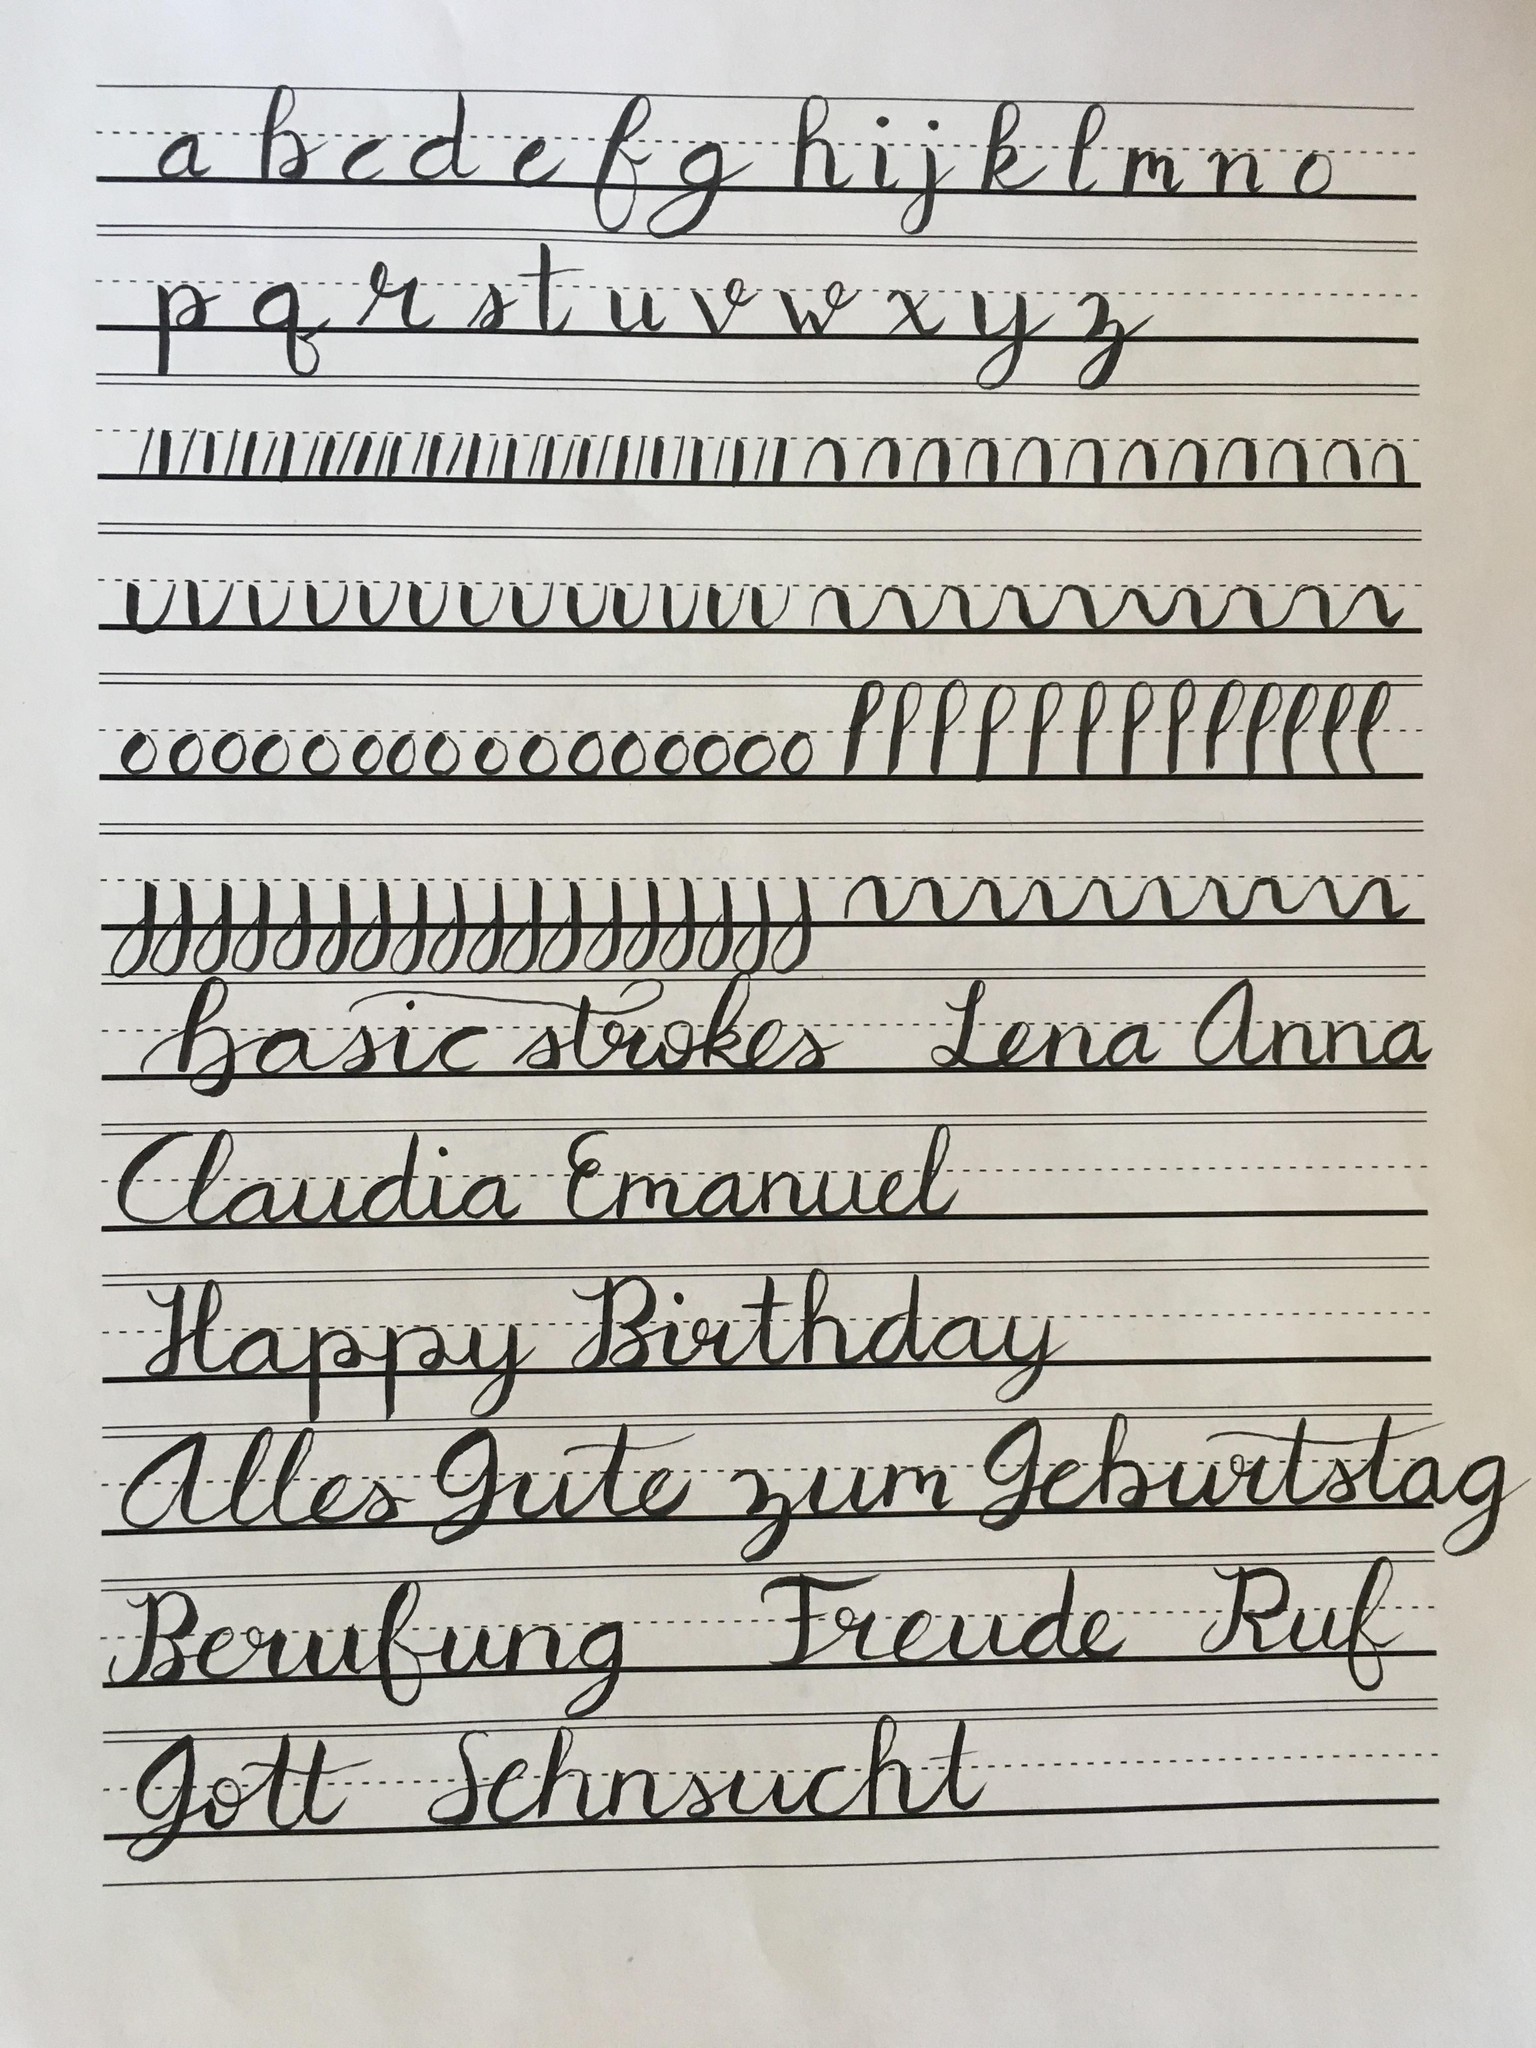 a b c d e f g h i j k l m n o
p q r s t u v w x y z
basic strokes Lena Anna
Claudia Emanuel
Happy Birthday
Alles Gute zum Geburtstag
Berufung Freude Ruf
Gott Sehnsucht